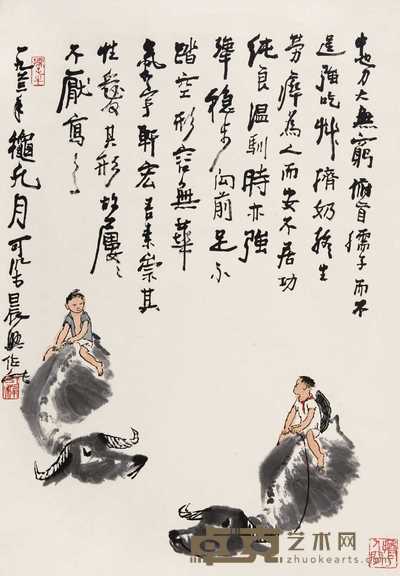 牛也力大無窮俯首孺子而不
逞強吃草擠奶終生
勞瘁為人而安不居功
純良溫馴時亦強
犟穩步向前足不
踏空形容無華
氣宇軒宏吾素崇其
性愛其形故屢々
不厭寫之
一九六三年龝九月可染晨興作
卓克艺术网
zhuokearts.com